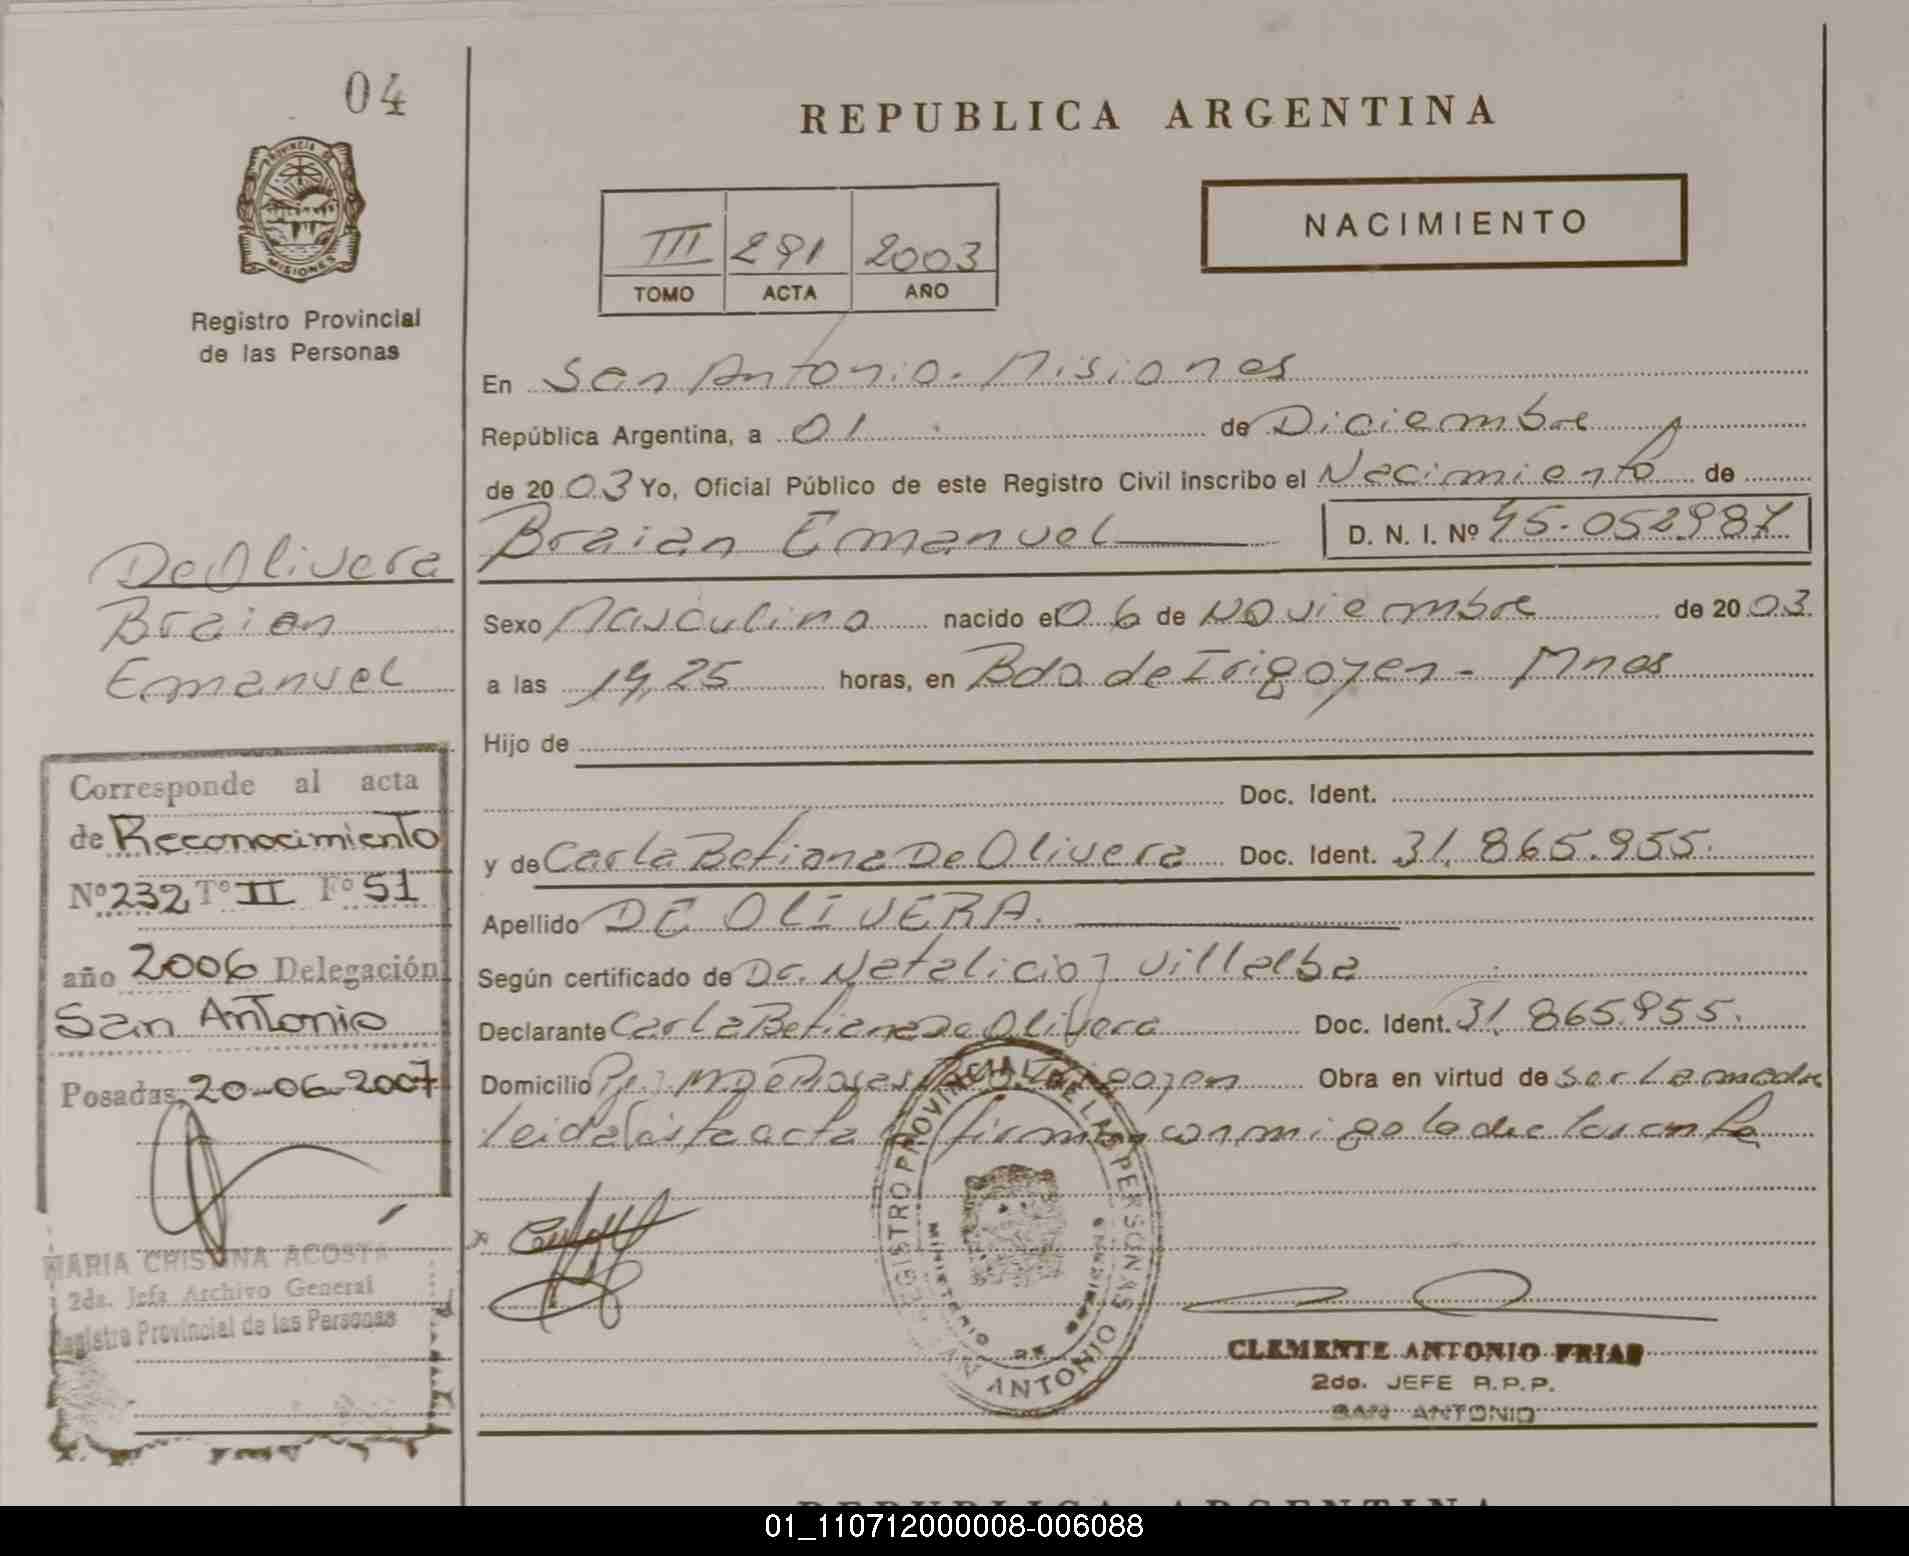 04
REPUBLICA ARGENTINA
PROVINCIA DE
MISIONES
Registro Provincial
de las Personas
III 291 2003
TOMO ACTA AÑO
NACIMIENTO
En San Antonio. Misiones
República Argentina, a 01 de Diciembre
de 2003 Yo, Oficial Público de este Registro Civil inscribo el Nacimiento de
Braian Emanuel D. N. I. Nº 45.052987
De Olivera
Braian
Emanuel
Sexo Masculino nacido el 06 de Noviembre de 2003.
a las 14,25 horas, en Bdo de Irigoyen - Mnes
Hijo de
Doc. Ident.
y de Carla Betiana De Olivera Doc. Ident. 31.865.955.
Apellido DE OLIVERA.
Según certificado de Dr. Natalicio J Villalba
Declarante Carla Betiana De Olivera Doc. Ident. 31.865.955.
Domicilio Obra en virtud de ser la madre
leida esta acta firma conmigo la declarante
Corresponde al acta
de Reconocimiento
Nº 232 Tº II Fº 51
año 2006 Delegación
San Antonio
Posadas, 20-06-2007
MARIA CRISTINA ACOSTA
2da. Jefa Archivo General
Registro Provincial de las Personas
REGISTRO PROVINCIAL DE LAS PERSONAS
MINISTERIO DE GOBIERNO
SAN ANTONIO
CLEMENTE ANTONIO FRIAS
2do. JEFE R.P.P.
SAN ANTONIO
REPUBLICA ARGENTINA
01_110712000008-006088